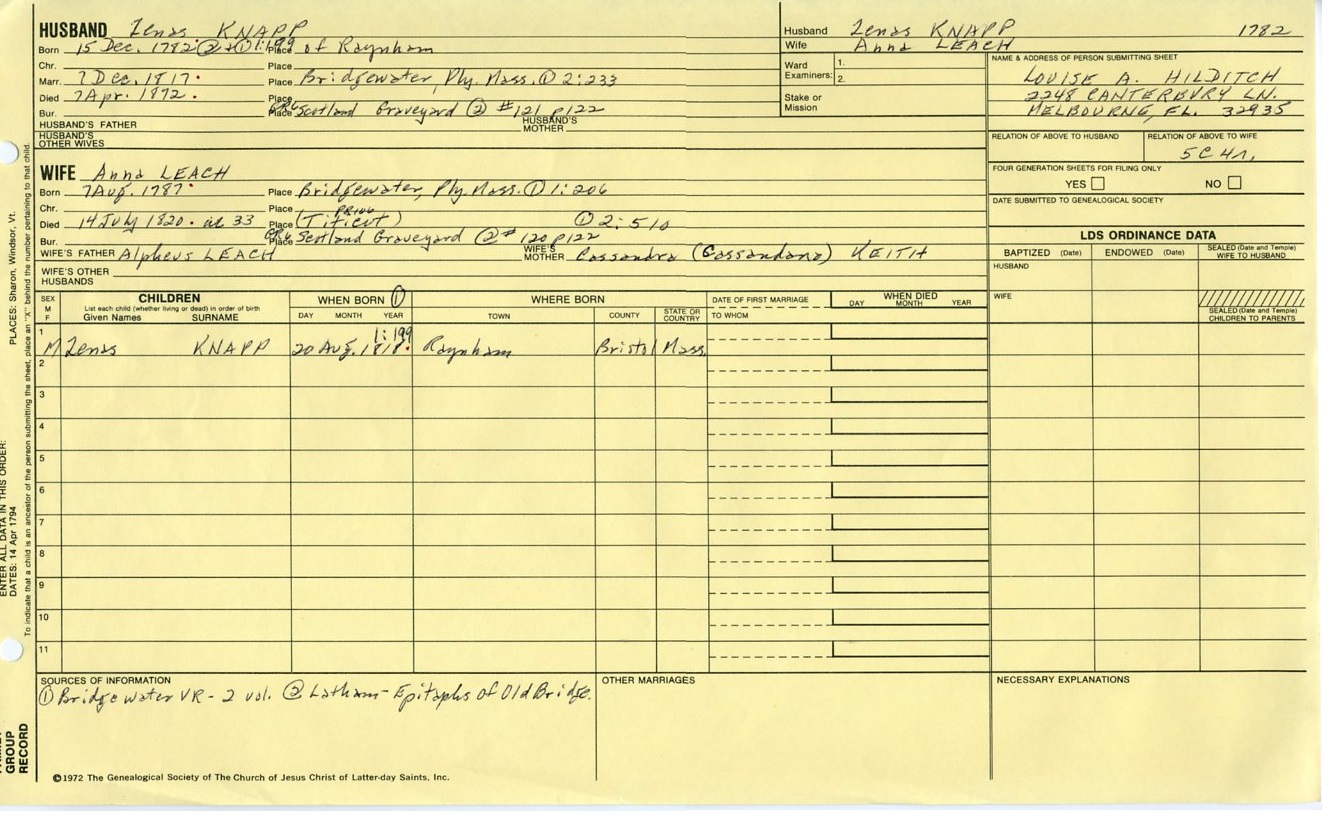 HUSBAND Zenas KNAPP
Born 15 Dec. 1782 ② + ① 1:199 Place of Raynham
Chr. Place
Marr. 7 Dec. 1817. Place Bridgewater, Ply. Mass. ① 2:233
Died 7 Apr. 1872. Place
Bur. Place Scotland Graveyard ② #121 p122
HUSBAND'S FATHER HUSBAND'S MOTHER
HUSBAND'S OTHER WIVES
Husband Zenas KNAPP 1782
Wife Anna LEACH
Ward 1.
Examiners: 2.
Stake or Mission
NAME & ADDRESS OF PERSON SUBMITTING SHEET
LOUISE A. HILDITCH
2248 CANTERBURY LN.
MELBOURNE, FL. 32935
RELATION OF ABOVE TO HUSBAND RELATION OF ABOVE TO WIFE
5C4r.
FOUR GENERATION SHEETS FOR FILING ONLY
YES NO
DATE SUBMITTED TO GENEALOGICAL SOCIETY
WIFE Anna LEACH
Born 7 Aug. 1787. Place Bridgewater, Ply. Mass. ① 1:206
Chr. Place
Died 14 July 1820. ae 33 Place (Titicut) ① 2:510
Bur. Place Scotland Graveyard ② # 120 p122
WIFE'S FATHER Alpheus LEACH WIFE'S MOTHER Cassandra (Cassandana) KEITH
WIFE'S OTHER HUSBANDS
LDS ORDINANCE DATA
BAPTIZED (Date) ENDOWED (Date) SEALED (Date and Temple) WIFE TO HUSBAND
HUSBAND
WIFE
SEALED (Date and Temple) CHILDREN TO PARENTS
SEX M F CHILDREN WHEN BORN ① WHERE BORN DATE OF FIRST MARRIAGE WHEN DIED
List each child (whether living or dead) in order of birth
Given Names SURNAME DAY MONTH YEAR TOWN COUNTY STATE OR COUNTRY TO WHOM DAY MONTH YEAR
1 1:199
M Zenas KNAPP 20 Aug. 1818. Raynham Bristol Mass.
2
3
4
5
6
7
8
9
10
11
SOURCES OF INFORMATION OTHER MARRIAGES NECESSARY EXPLANATIONS
① Bridgewater VR - 2 vol. ② Latham - Epitaphs of Old Bridge.
©1972 The Genealogical Society of The Church of Jesus Christ of Latter-day Saints, Inc.
GROUP
RECORD
ENTER ALL DATA IN THIS ORDER:
DATES: 14 Apr 1794 PLACES: Sharon, Windsor, Vt.
To indicate that a child is an ancestor of the person submitting the sheet, place an "X" behind the number pertaining to that child.